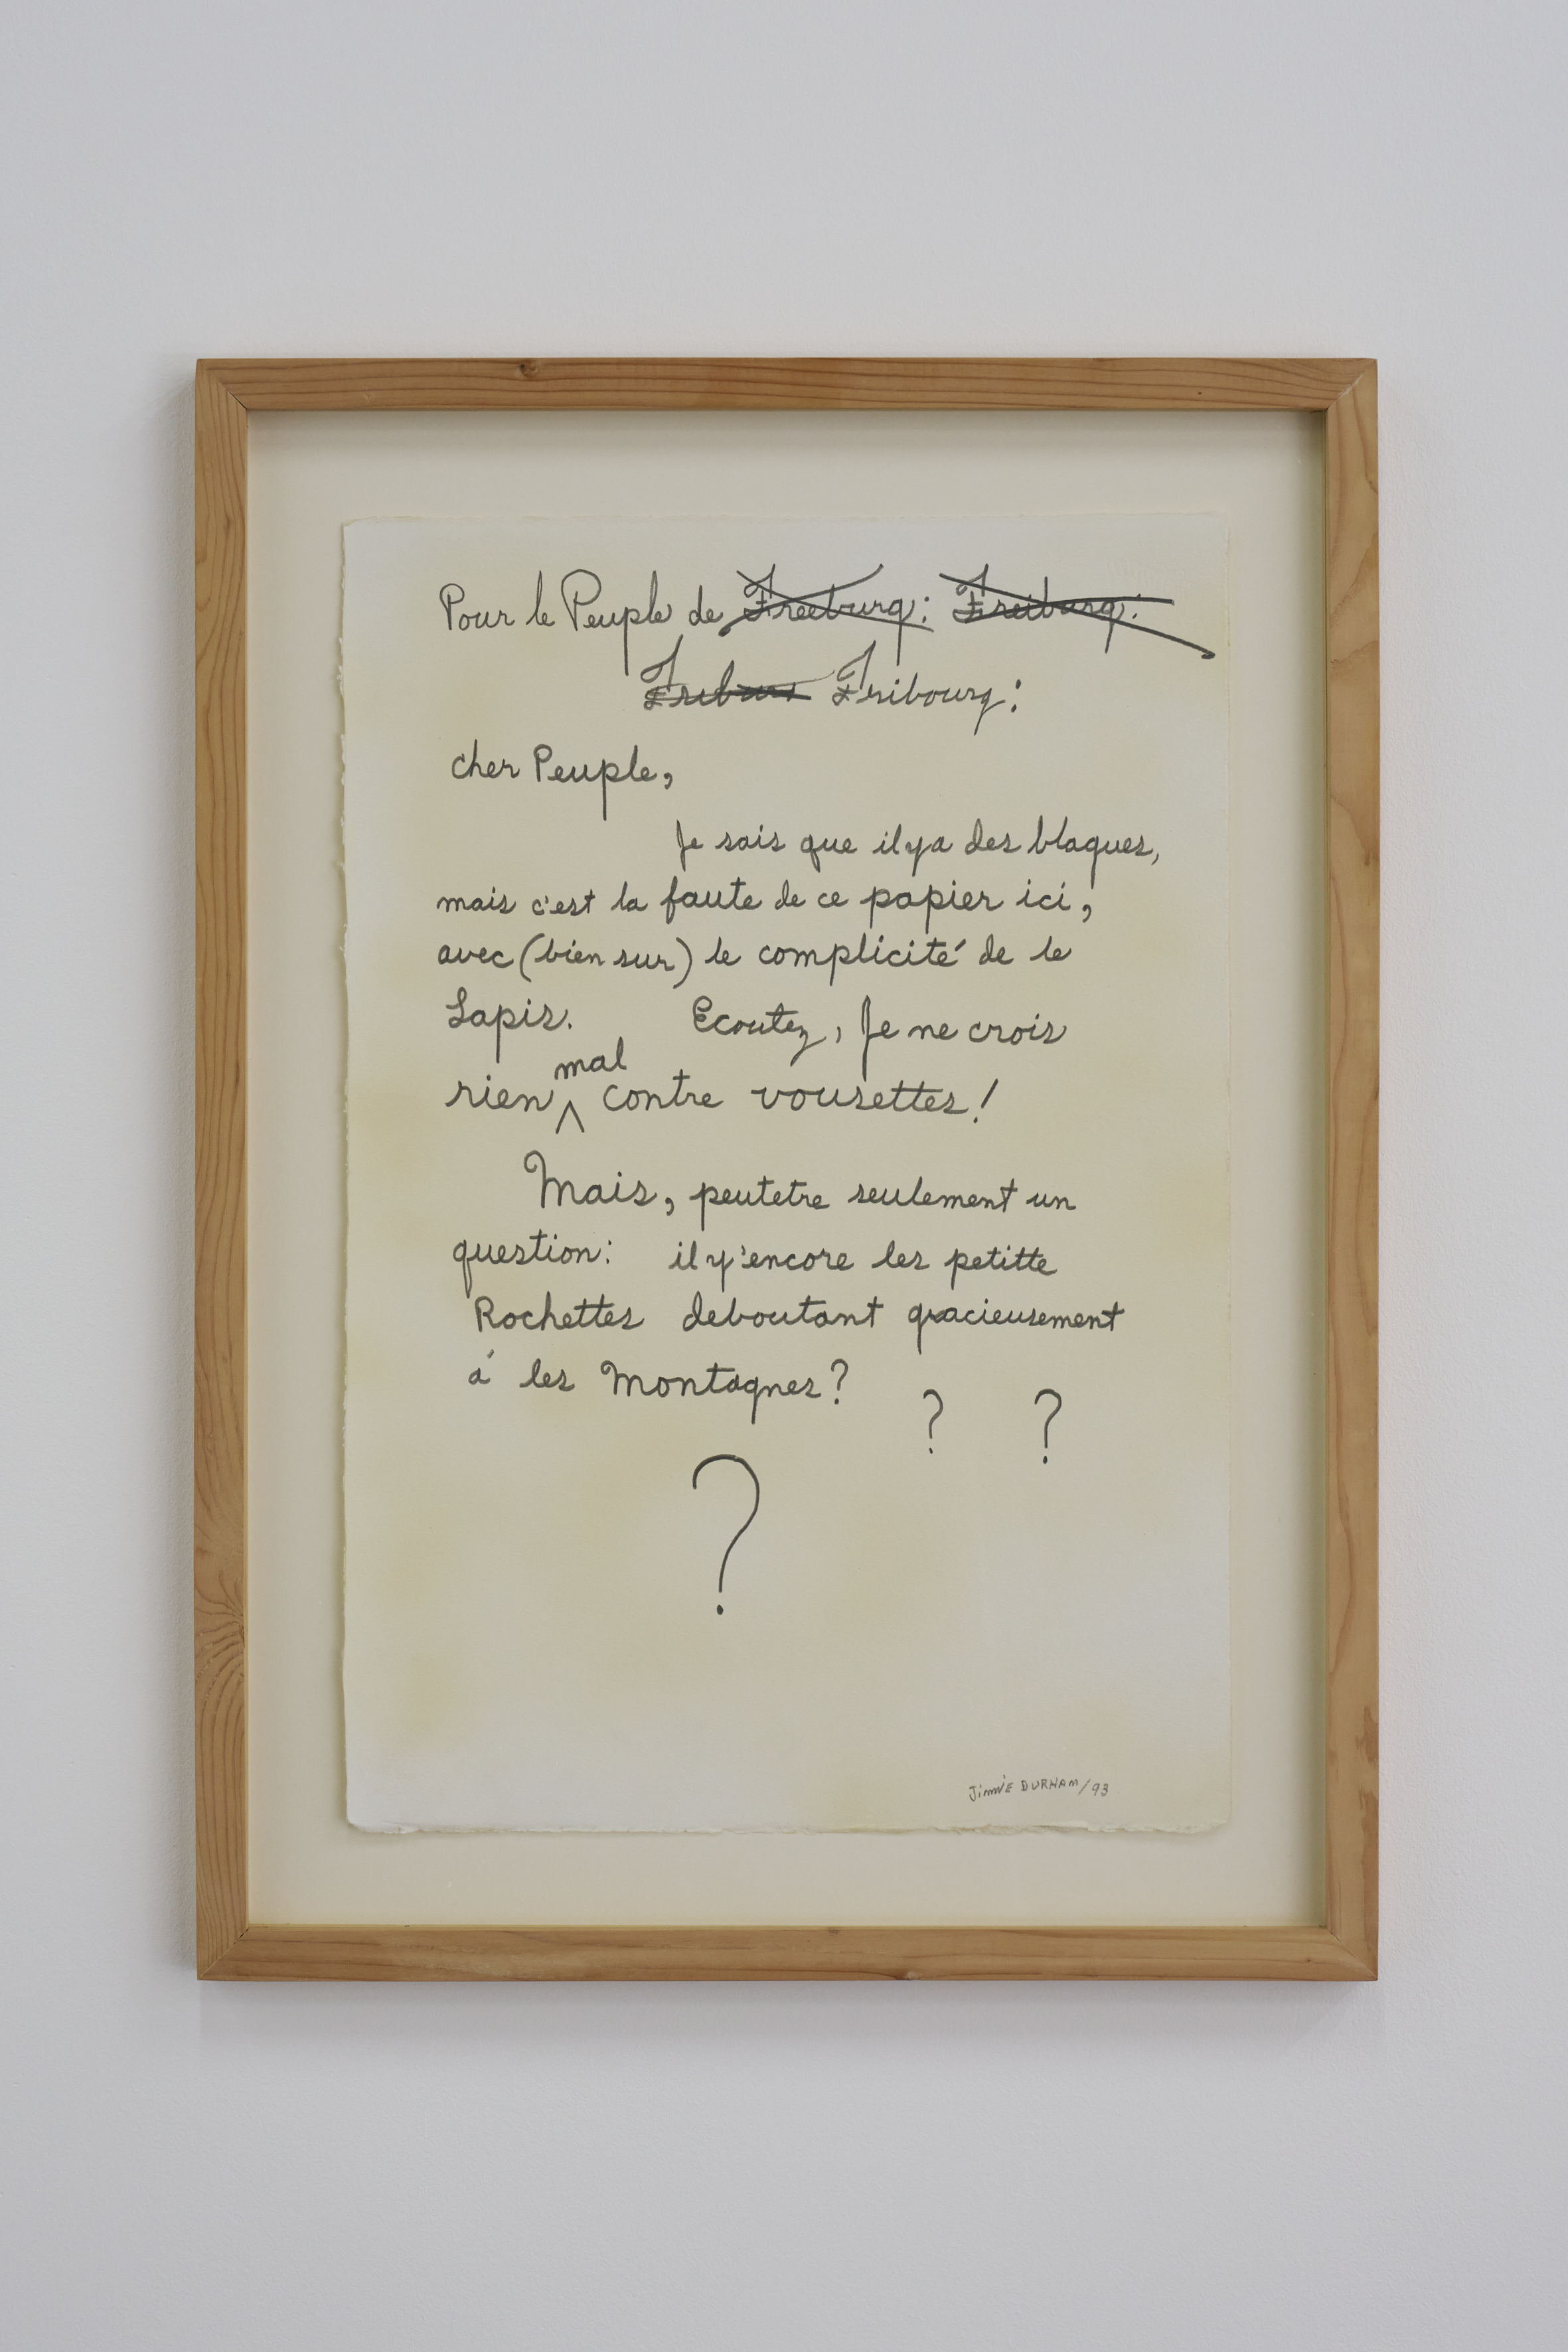 Pour le Peuple de Freeburg: Freiburg:
Fribourg:
cher Peuple,
Je sais que ilya des blaques,
mais c'est la faute de ce papier ici,
avec (bien sur) le complicité de le
Lapis. Ecoutez, Je ne crois
mal
rien ^ contre vousettes!
Mais, peutetre seulement un
question: il y'encore les petitte
Rochettes deboutant gracieusement
á les Montagnes?
? ?
?
JimmiE DURHAM/93